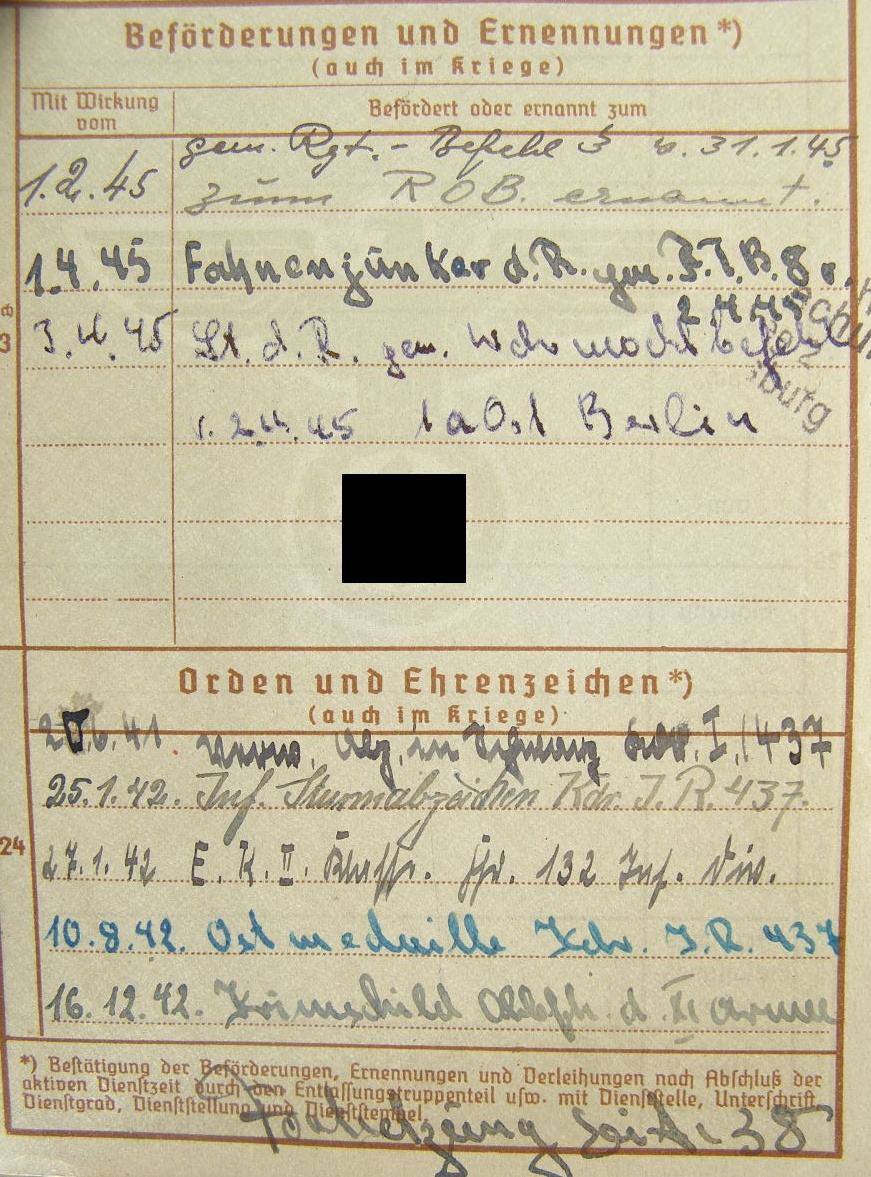 Beförderungen und Ernennungen *)
(auch im Kriege)
Mit Wirkung vom
Befördert oder ernannt zum
gem. Rgt.-Befehl 3 v. 31.1.45
1.2.45 zum ROB. ernannt.
1.4.45 Fahnenjunker d.R. gem. F.J.B. 8 v.
2.4.45
3.4.45 Lt. d. R. gem. Wehrmachtbefehl
v. 2.4.45 Berlin
burg
Orden und Ehrenzeichen *)
(auch im Kriege)
6.41. Verw. Abz. in Schwarz I./437
25.1.42. Inf. Sturmabzeichen Kdr. J.R. 437.
27.1.42 E. K. II. 132 Inf. Div.
10.8.42. Ostmedaille Kdr. J.R. 437
16.12.42. Krimschild Obbfh. d. XI Armee
24
*) Bestätigung der Beförderungen, Ernennungen und Verleihungen nach Abschluß der
aktiven Dienstzeit durch den Entlassungstruppenteil usw. mit Dienststelle, Unterschrift,
Dienstgrad, Dienststellung und Dienststempel.
Fortsetzung Seite 38